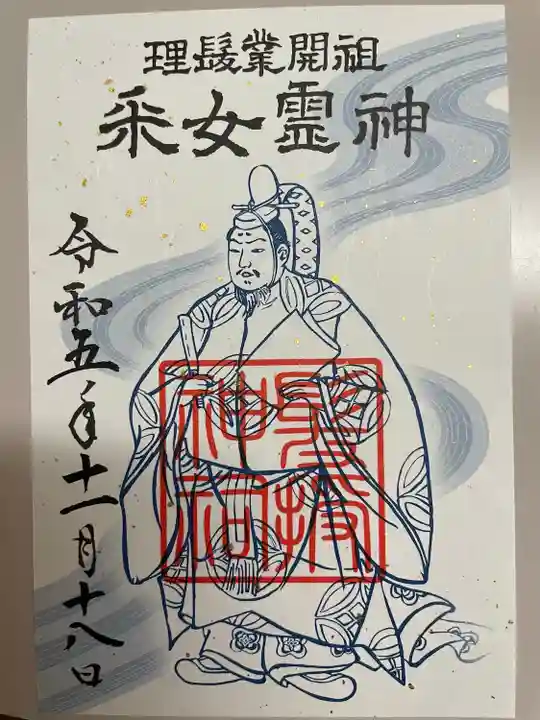 理髮業開祖
采女霊神
令和五年十一月十八日
聖接
神社